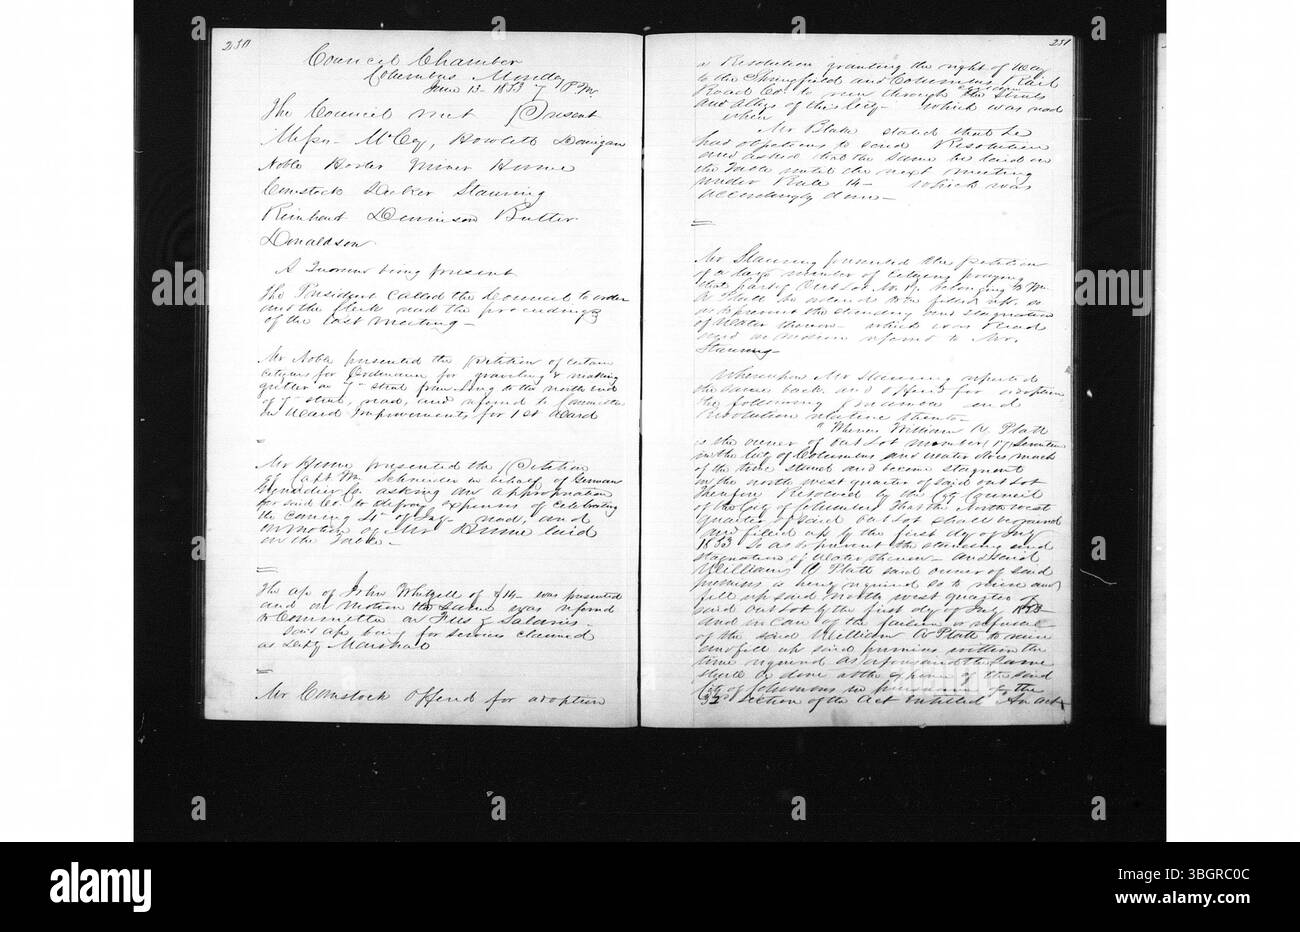 230
Council Chamber
Columbus Monday
June 13 1853 7 P.M.
The Council met Present
Messrs McCoy, Howlett Donigan
Noble Horter Miner Hume
Comstock Decker Stauring
Reinhard Dennison Butler
Donaldson
A Quorum being present
The President called the Council to order
and the Clerk read the proceedings
of the last meeting
Mr Noble presented the petition of certain
citizens for Ordinance for graveling & making
gutter on 7th street from Long to the north end
of 7th street, read, and referred to Committee
on Ward Improvements for 1st Ward
Mr Hume presented the Petition
of Capt Wm Schneider in behalf of German
Grenadier Co. asking an appropriation
for said Co. to defray expenses of celebrating
the coming 4th of July read, and
on motion of Mr Hume laid
on the Table
The a/c of John Whitzell of $14 was presented
and on motion the same was referred
to Committee on Fees & Salaries
said a/c being for services claimed
as Depty Marshal
Mr Comstock offered for adoption
231
a Resolution granting the right of way
to the Springfield and Columbus Rail
Road Co. to run through the Streets
and alleys of the City which was read
when
Mr Blake stated that he
had objections to said Resolution
and asked that the same be laid on
the Table until the next meeting
under Rule 14 which was
accordingly done
Mr Stauring presented the petition
of a large number of Citizens praying
that part of Out Lot No. 17 belonging to Wm
A Platt be ordered to be filled up so
as to prevent the standing and stagnation
of Water thereon which was Read
and on motion referred to Mr.
Stauring
Whereupon Mr Stauring reported
the same back and offered for adoption
the following Preamble and
Resolution relative thereto
"Whereas William A. Platt
is the owner of out Lot number (17) Seventeen
in the City of Columbus and water does much
of the time stand and become stagnant
on the north west quarter of said out Lot
Therefore Resolved by the City Council
of the City of Columbus That the North west
quarter of said out Lot shall be raised
and filled up by the first day of July
1853 so as to prevent the standing and
stagnation of Water thereon and said
William A Platt said owner of said
premises is hereby required so to raise and
fill up said North west quarter of
said out Lot by the first day of July 1853
and in case of the failure or refusal
of the said William A Platt to raise
and fill up said premises within the
time required as aforesaid the same
shall be done at the expense of the said
City of Columbus in pursuance of the
32 section of the Act entitled An act